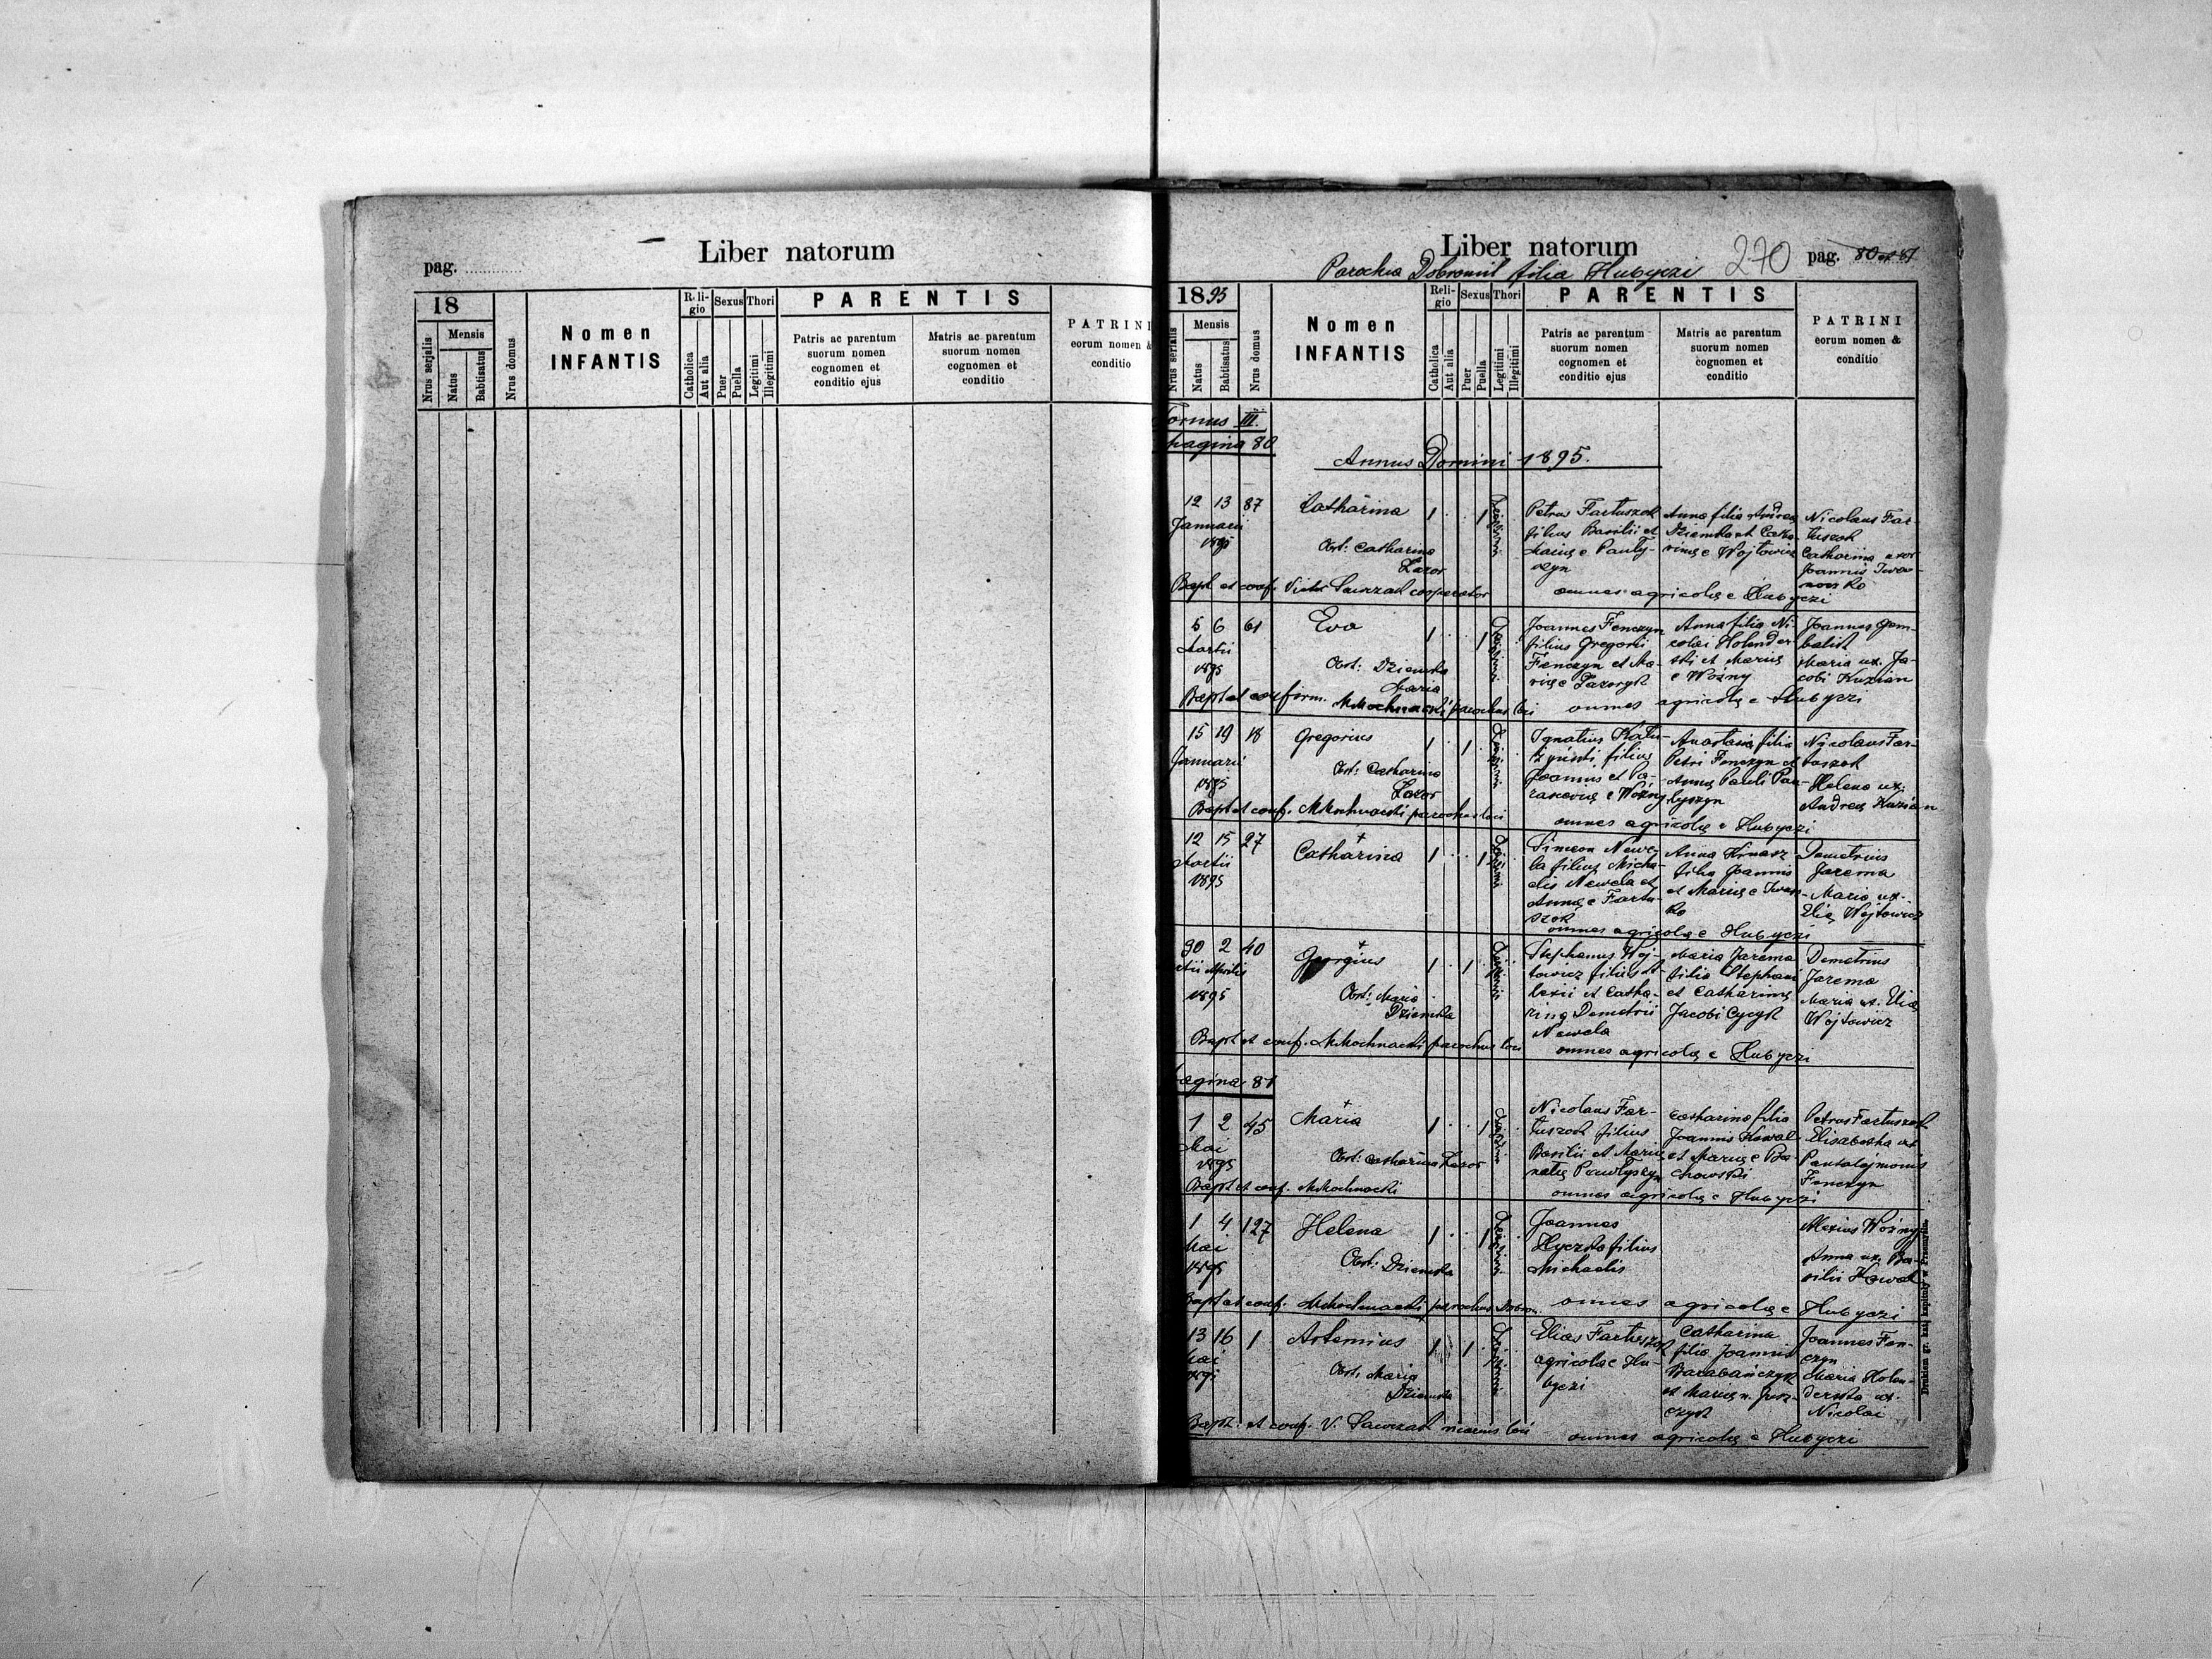 Liber natorum
pag.
18
Nrus serjalis
Mensis
Natus
Babtisatus
Nrus domus
Nomen
INFANTIS
Reli-
gio
Catholica
Aut alia
Sexus
Puer
Puella
Thori
Legitimi
Illegitimi
PARENTIS
Patris ac parentum
suorum nomen
cognomen et
conditio ejus
Matris ac parentum
suorum nomen
cognomen et
conditio
PATRINI
eorum nomen &
conditio
Liber natorum
270
pag. 80 et 81
Parochia Dobromil filia Hubyczi
1895
Nrus serialis
Mensis
Natus
Babtisatus
Nrus domus
Nomen
INFANTIS
Reli-
gio
Catholica
Aut alia
Sexus
Puer
Puella
Thori
Legitimi
Illegitimi
PARENTIS
Patris ac parentum
suorum nomen
cognomen et
conditio ejus
Matris ac parentum
suorum nomen
cognomen et
conditio
PATRINI
eorum nomen &
conditio
Tomus III.
pagina 80
Annus Domini 1895.
12 13 87
Januarii
1895
Catharina
Obst: Catharina
Lazor
1 1
Petrus Fartuszok
filius Basilii et
Mariae Pauly-
czyn
Anna filia Andreę
Dziemba et Catha-
rinę e Wojtowicz
Nicolaus Far-
tuszok
Catharina uxor
Joannis Iwa-
Bapt et conf. Victor Sawczak cooperator
omnes agricolę e Hubyczi
5 6 61
Martii
1895
Eva
Obst: Dziemba
Maria
1 1
Joannes Fenczyn
filius Gregorii
Fenczyn et Ma-
rię e Lazoryk
Anna filia Ni-
colai Holender-
ski et Marię
e Woźny
Joannes Gem-
balik
Maria ux. Ja-
cobi Kuzian
Bapt et conform. M. Mochnacki parochus loci
omnes agricolę e Hubyczi
15 19 18
Januarii
1895
Gregorius
Obst: Catharina
Lazor
1 1
Ignatius Ratu-
filius
Joannis et Pa-
rascevię e Woźny
Anastasia filia
Petri Fenczyn et
Annę Pauli Pau-
lyszyn
Nicolaus Far-
tuszok
Helena ux.
Andreę Kuzian
Bapt et conf. M. Mochnacki parochus loci
omnes agricolę e Hubyczi
12 15 27
Martii
1895
Catharina
1 1
Simeon Newe-
la filius Micha-
elis Newela et
Annę e Fartu-
szok
Anna Hnasz
filia Joannis
et Marię e Iwan-
ko
Demetrius
Jarema
Maria ux.
Elię Wojtowicz
omnes agricolę e Hubyczi
30 2 40
Aprilis
1895
Georgius
Obst: Maria
Dziemba
1 1
Stephanus Woj-
towicz filius A-
lexii et Catha-
rinę Demetrii
Newela
Maria Jarema
filia Stephani
et Catharinę
Jacobi Cycyk
Demetrius
Jarema
Maria ux. Elię
Wojtowicz
Bapt et conf. M. Mochnacki parochus loci
omnes agricolę e Hubyczi
pagina 81
1 2 45
Mai
1895
Maria
Obst: Catharina Lazor
1 1
Nicolaus Far-
tuszok filius
Basilii et
Pawlyszyn
Catharina filia
Joannis Kowal
et Marię e Ba-
chowski
Petrus Fartuszok
Elisabetha ux
Pantalejmonis
Fenczyn
Bapt et conf. M. Mochnacki
omnes agricolę e Hubyczi
1 4 127
Mai
1895
Helena
Obst: Dziemba
1 1
Joannes
Hyczko filius
Michaelis
Alexius Woźny
Anna ux. Ba-
silii Kowal
Bapt et conf. M. Mochnacki parochus Dobrom.
omnes agricolę e Hubyczi
13 16 1
Mai
1895
Artemius
Obst. Maria
Dziemba
1 1
Elias Fartuszok
agricola e Hu-
byczi
Catharina
filia Joannis
Barabańczyk
et Marię n. Jusz-
czyk
Joannes Fen-
czyn
Maria Holen-
derska ux.
Nicolai
Bapt. et conf. V. Sawczak vicarius loci
omnes agricolę e Hubyczi
Drukiem gr. kat. kapituły w Przemyślu